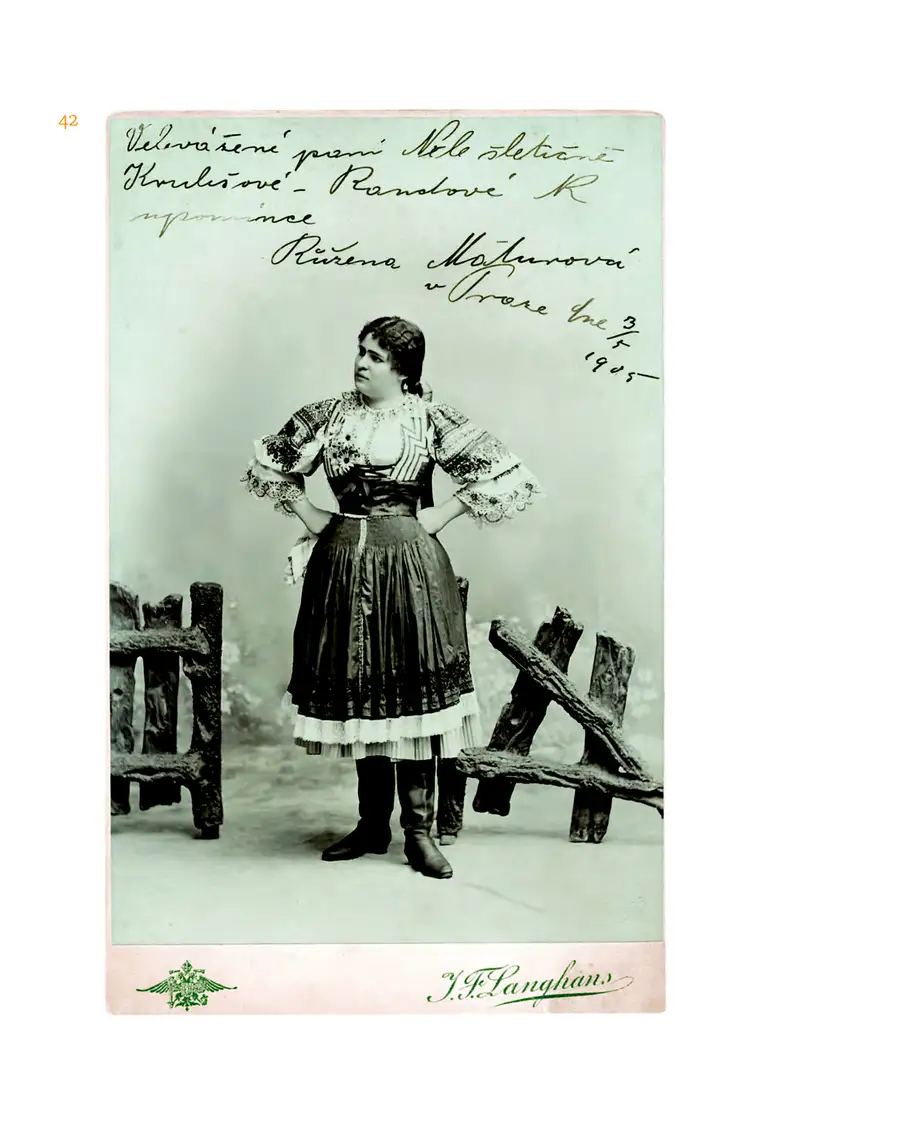 42
Velevážené paní Nele šlechtičně
Krulišové - Randové K
upomínce
Růžena Maturová
v Praze dne 3/5
1905
J.F. Langhans